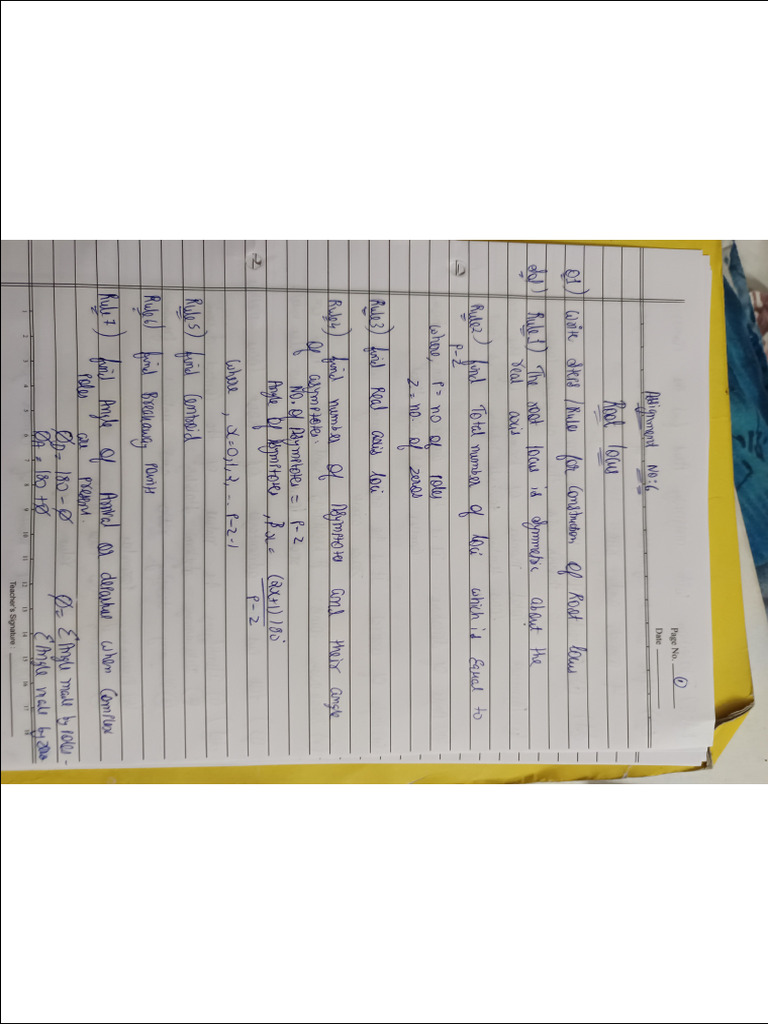 Page No. 1
Date
Assignment No:6
Root locus
Q1) Write steps / Rule for Construction of Root locus
Sol) Rule 1) The root locus is symmetric about the
real axis
Rule2) find Total number of loci which is equal to
P-Z
where, P = no of poles
Z = no. of zeros
Rule3) find Real axis loci
Rule4) find number of Asymptotes and their angle
of asymptotes.
No. of Asymptotes = P-Z
Angle of Asymptotes, βx = (2x+1)180°
P-Z
where, x=0,1,2,... P-Z-1
Rule 5) find Centroid
Rule 6) find Breakaway points
Rule 7) find Angle of Arrival or departure when Complex
poles are present.
ØD = 180 - Ø Ø = Σ Angle made by poles -
ØA = 180 + Ø Σ Angle made by zeros
1 2 3 4 5 6 7 8 9 10 11 12 13 14 15 16 17 18
Teacher's Signature :